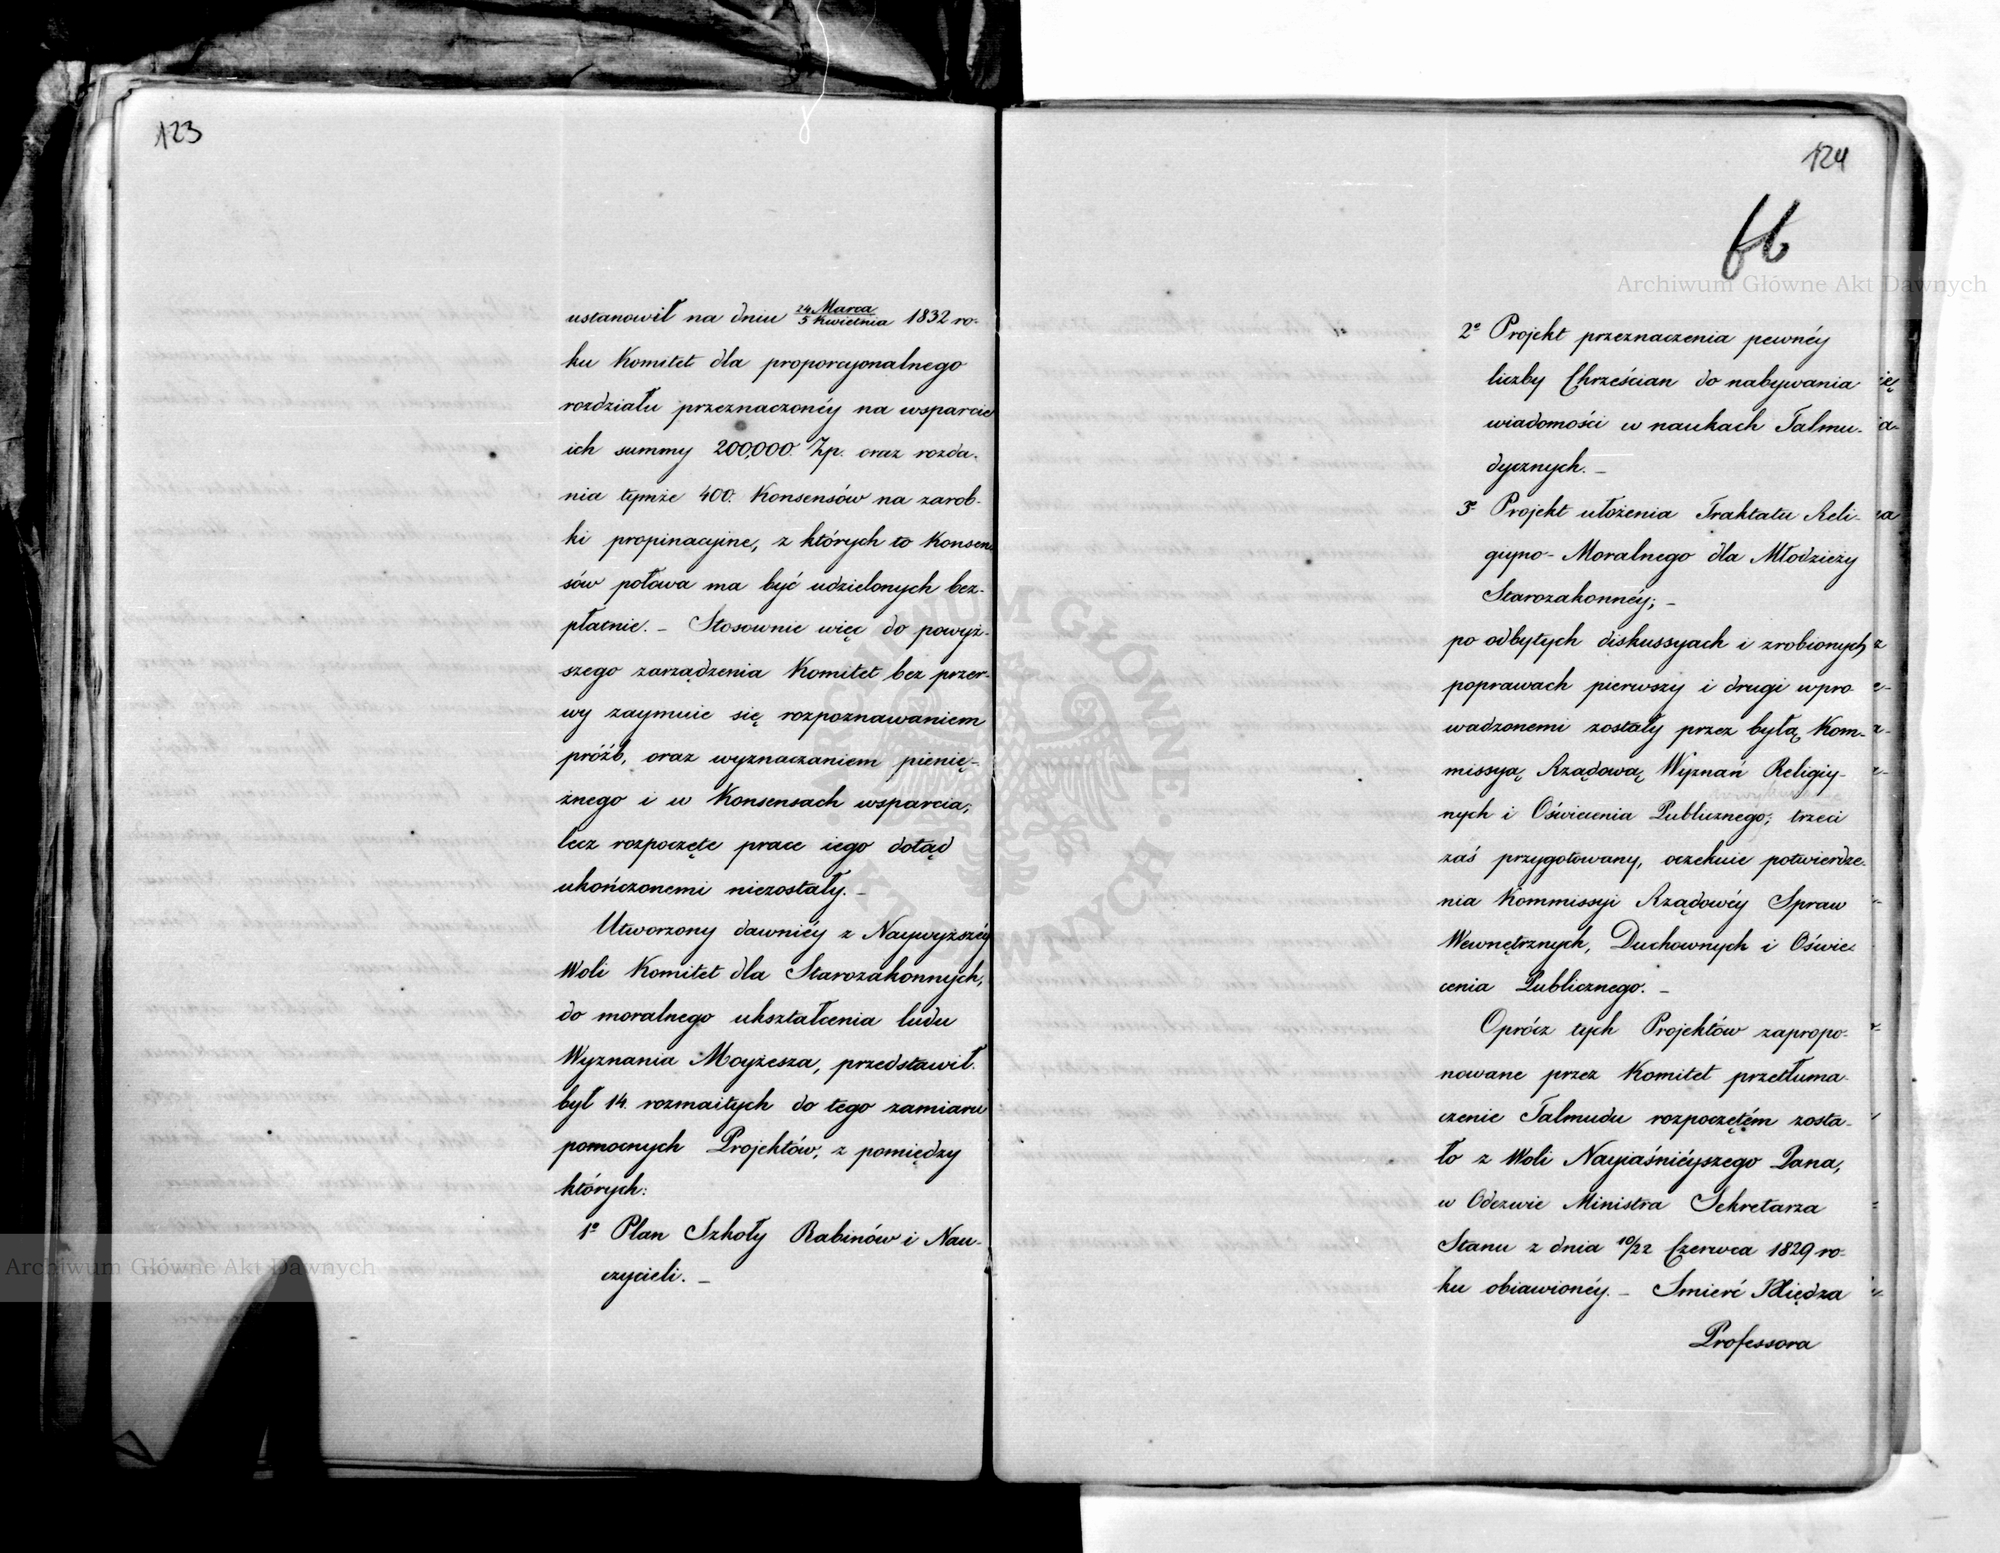 123
ustanowił na dniu 24 Marca / 5 Kwietnia 1832 ro-
ku Komitet dla proporcyonalnego
rozdziału przeznaczonéy na wsparcie
ich summy 200,000. Zp. oraz rozda-
nia tymże 400. Konsensów na zarob-
ki propinacyine, z których to Konsen-
sów połowa ma być udzielonych bez-
płatnie. – Stosownie więc do powyż-
szego zarządzenia Komitet bez przer-
wy zaymuie się rozpoznawaniem
próźb, oraz wyznaczaniem pienię-
żnego i w Konsensach wsparcia;
lecz rozpoczęte prace iego dotąd
ukończonemi niezostały. –
Utworzony dawniéy z Naywyższéy
Woli Komitet dla Starozakonnych,
do moralnego ukształcenia ludu
Wyznania Moyżesza, przedstawił
był 14. rozmaitych do tego zamiaru
pomocnych Projektów, z pomiędzy
których:
1º Plan Szkoły Rabinów i Nau-
czycieli. –
124
Archiwum Główne Akt Dawnych
2º Projekt przeznaczenia pewnéy
liczby Chrześcian do nabywania
wiadomości w naukach Talmu-
dycznych. –
3º Projekt ułożenia Traktatu Reli-
giyno-Moralnego dla Młodzieży
Starozakonnéy; –
po odbytych diskussyach i zrobionych
poprawach pierwszy i drugi wpro
wadzonemi zostały przez byłą Kom-
missyą Rządową Wyznań Religiy-
nych i Oświecenia Publicznego; trzeci
zaś przygotowany, oczekuie potwierdze-
nia Kommissyi Rządowéy Spraw
Wewnętrznych, Duchownych i Oświe-
cenia Publicznego. –
Oprócz tych Projektów zapropo-
nowane przez Komitet przetłuma-
czenie Talmudu rozpoczętém zosta-
ło z Woli Nayiaśniéyszego Pana,
w Odezwie Ministra Sekretarza
Stanu z dnia 10/22 Czerwca 1829 ro-
ku obiawionéy. – Smierć Xiędza
Professora
Archiwum Główne Akt Dawnych
ARCHIWUM GŁÓWNE AKT DAWNYCH